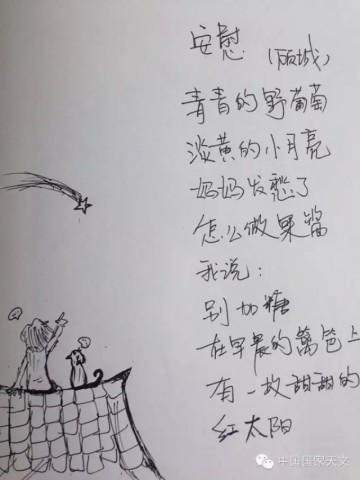 安慰 （顾城）
青青的野葡萄
淡黄的小月亮
妈妈发愁了
怎么做果酱
我说：
别加糖
在早晨的篱笆上
有一枚甜甜的
红太阳
中国国家天文